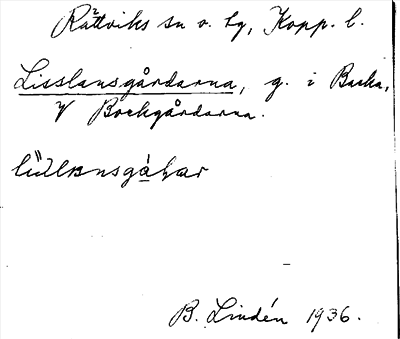 Rättviks sn o. hg, Kopp. l.
Lisslansgårdarna, g. i Backa,
V Bockgårdarna.
B. Lindén 1936.